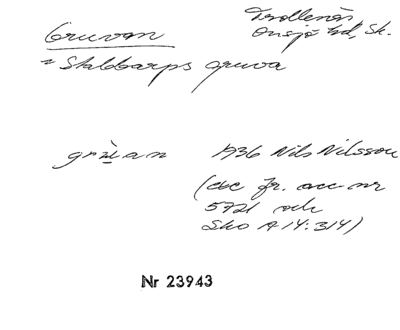 Gruvan
Trollenäs
Onsjö hd, Sk.
= Staldarps gruva
grùan
1936 Nils Nilsson
(exc fr. acc nr
5721 och
Sko A 14:314)
Nr 23943